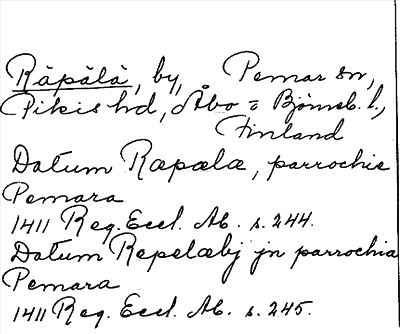 Räpälä, by, Pemar sn,
Pikis hd, Åbo = Björneb. l.,
Finland
Datum Ræpælæ, parrochie
Pemara
1411 Reg. Eccl. Ab. s. 244.
Datum Repelæbj jn parrochia
Pemara
1411 Reg. Eccl. Ab. s. 245.